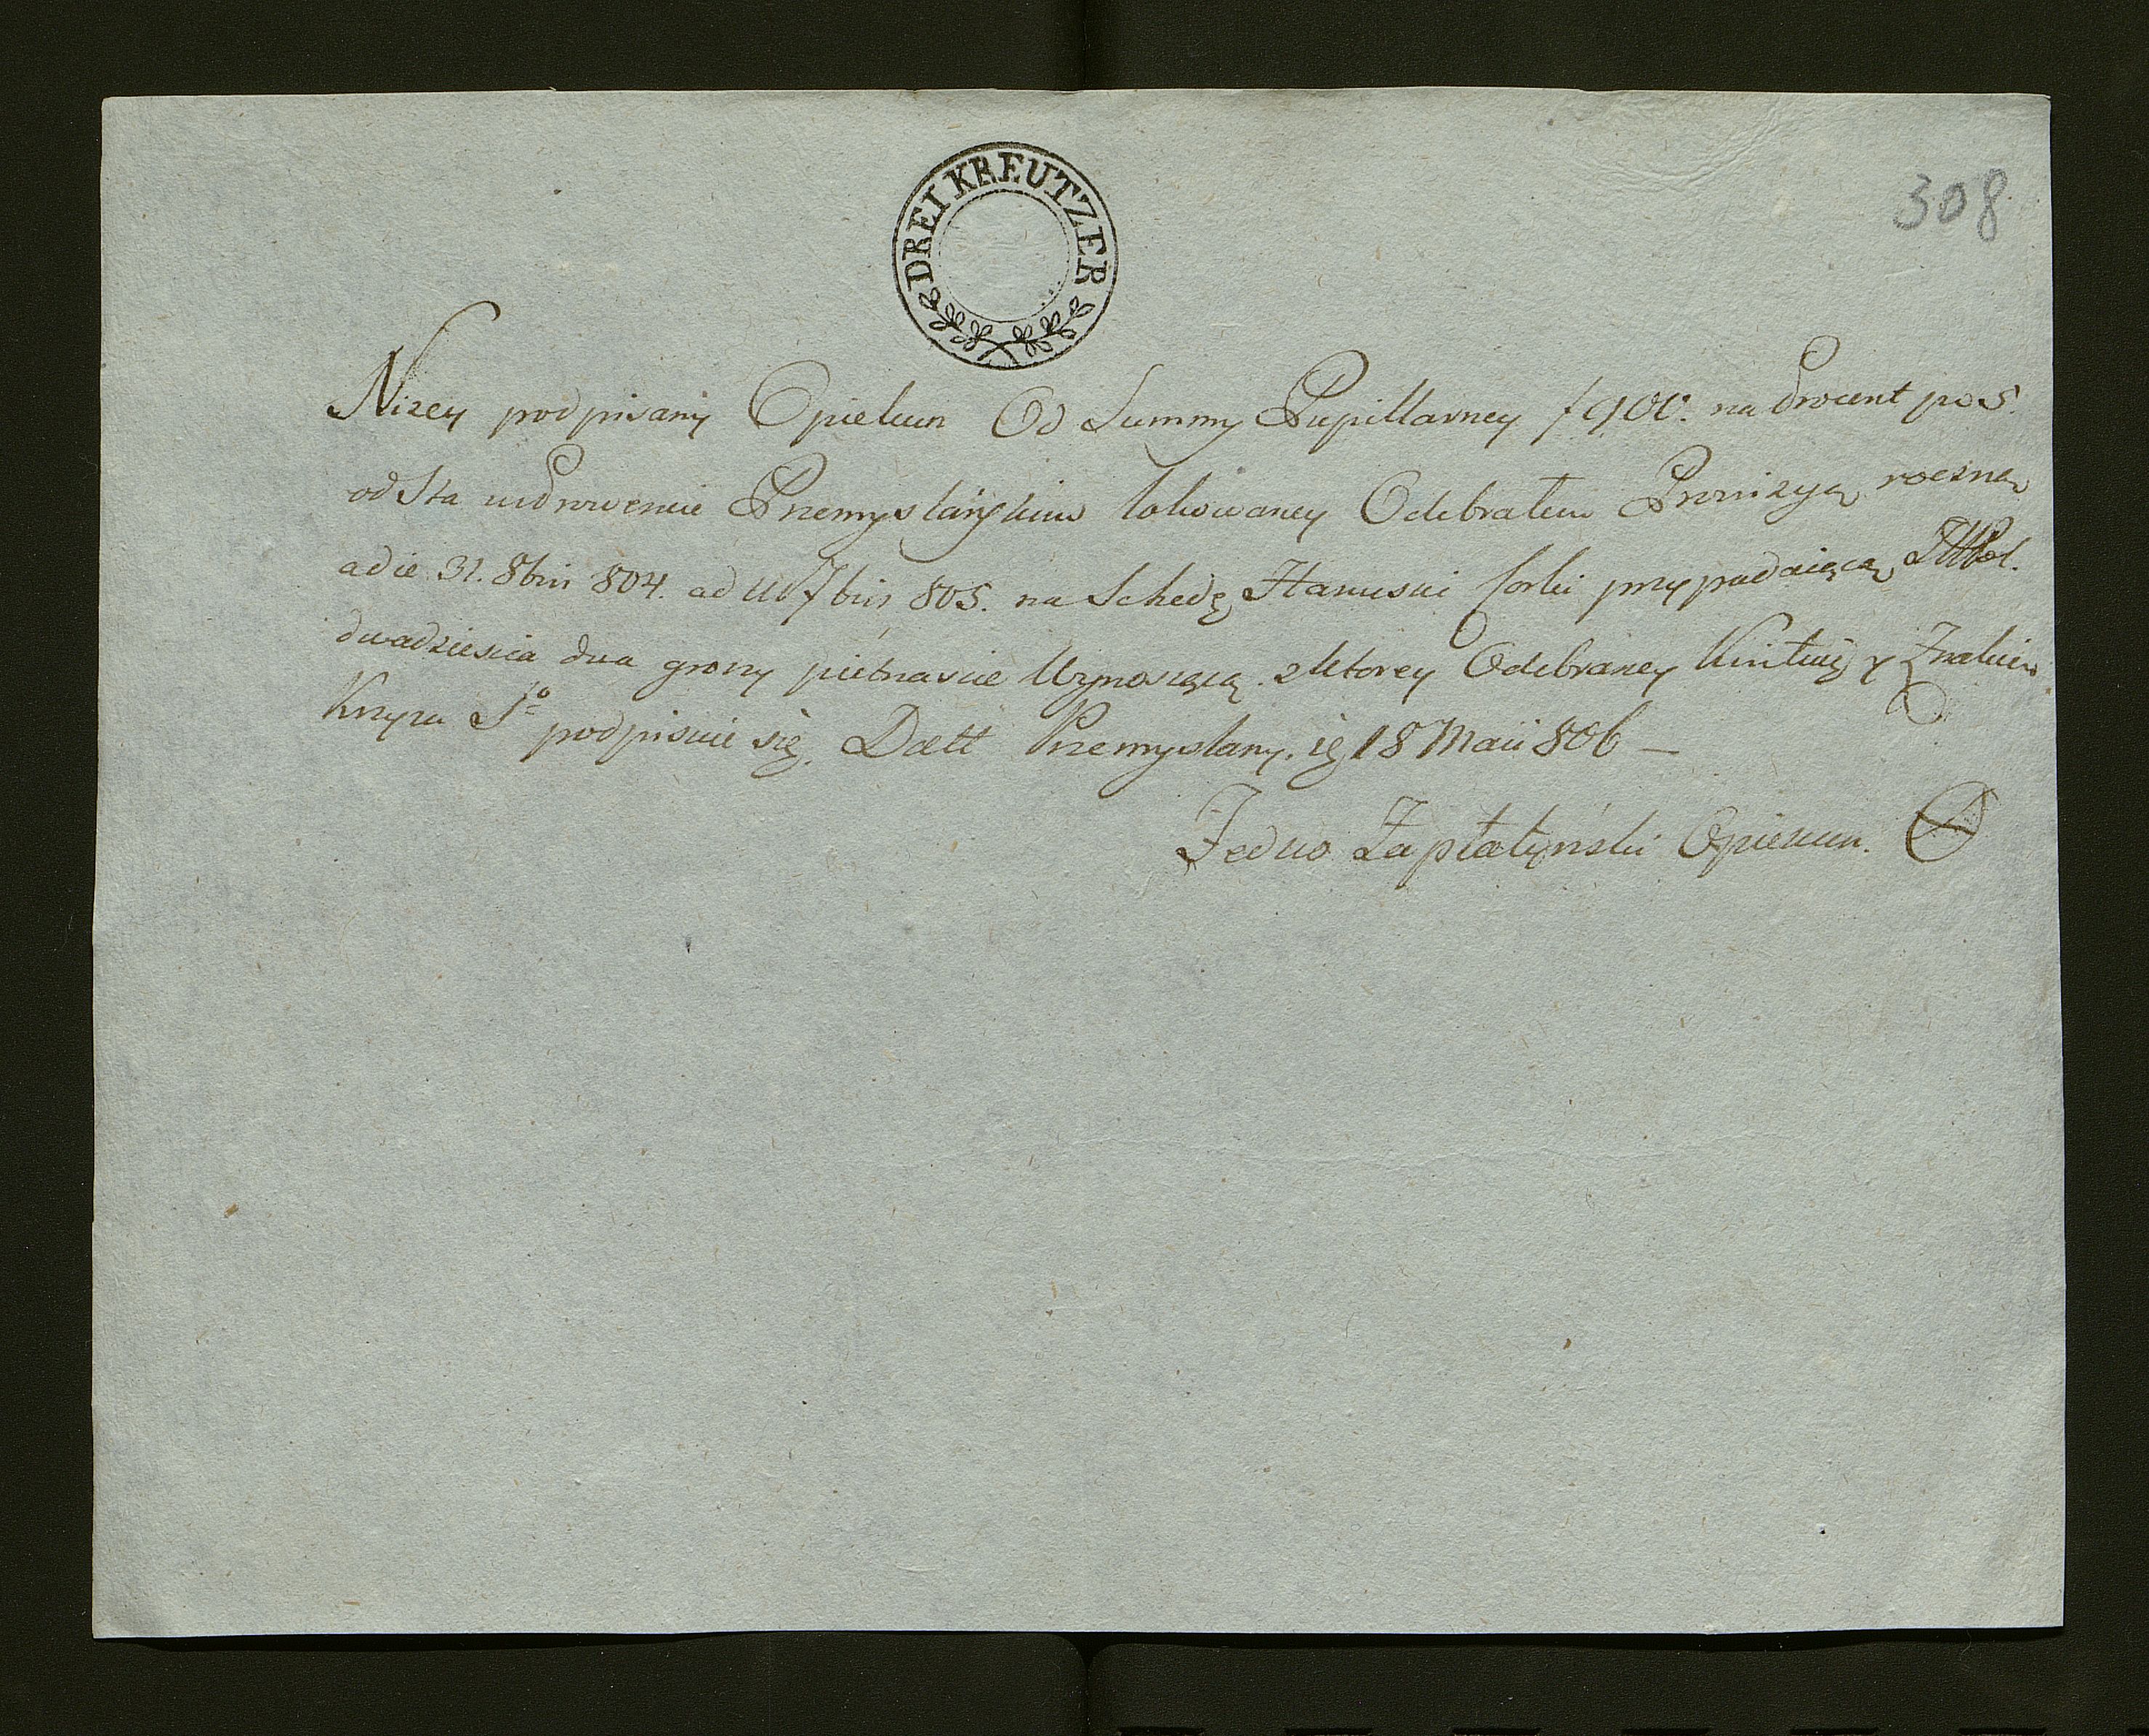 DREI KREUTZER
308
Nizey podpisany Opiekun Od Summy Pupillarney f 900. na Procent po 5.
od Sta w Prowencie Przemyslańskim lokowaney Odebrałem Prowizyą roczną
a die 31. 8bris 804. ad 7bris 805. na Schedę Hanuski Corki przypadaiącą
dwadziescia dwa groszy piętnascie Wynoszącą z ktorey Odebraney Kwituię y Znakiem
Krzyza So podpisuie się. Datt Przemyslany. 18 Maii 806 —
Fedko Zapłatyński Opiekun.